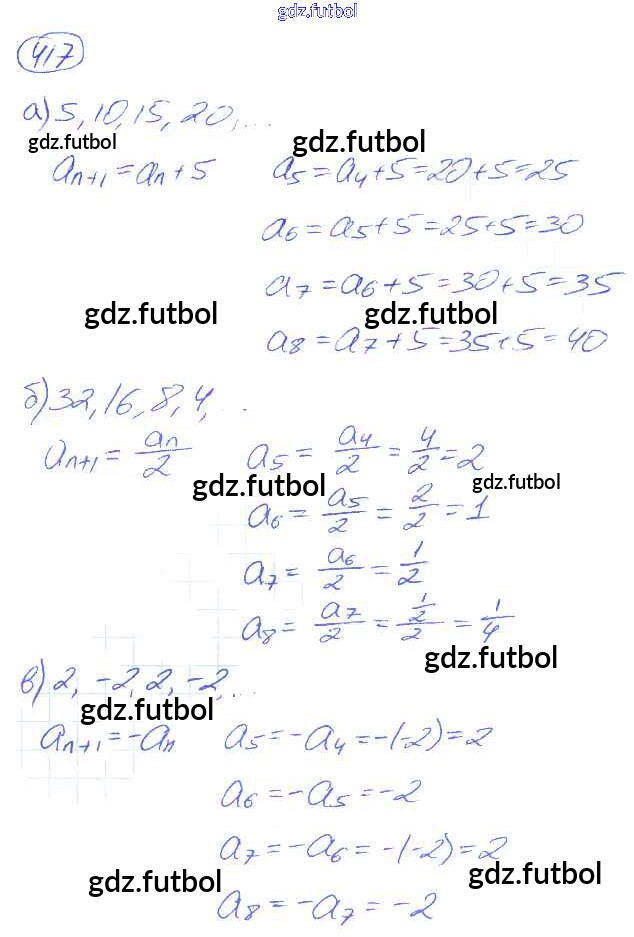 gdz.futbol
417
а) 5, 10, 15, 20, ...
gdz.futbol gdz.futbol
aₙ₊₁ = aₙ + 5 a₅ = a₄ + 5 = 20 + 5 = 25
a₆ = a₅ + 5 = 25 + 5 = 30
a₇ = a₆ + 5 = 30 + 5 = 35
gdz.futbol gdz.futbol
a₈ = a₇ + 5 = 35 + 5 = 40
б) 32, 16, 8, 4, ...
aₙ₊₁ = aₙ/2 a₅ = a₄/2 = 4/2 = 2
gdz.futbol gdz.futbol
a₆ = a₅/2 = 2/2 = 1
a₇ = a₆/2 = 1/2
a₈ = a₇/2 = (1/2)/2 = 1/4
gdz.futbol
в) 2, -2, 2, -2, ...
gdz.futbol
aₙ₊₁ = -aₙ a₅ = -a₄ = -(-2) = 2
a₆ = -a₅ = -2
a₇ = -a₆ = -(-2) = 2
gdz.futbol gdz.futbol
a₈ = -a₇ = -2